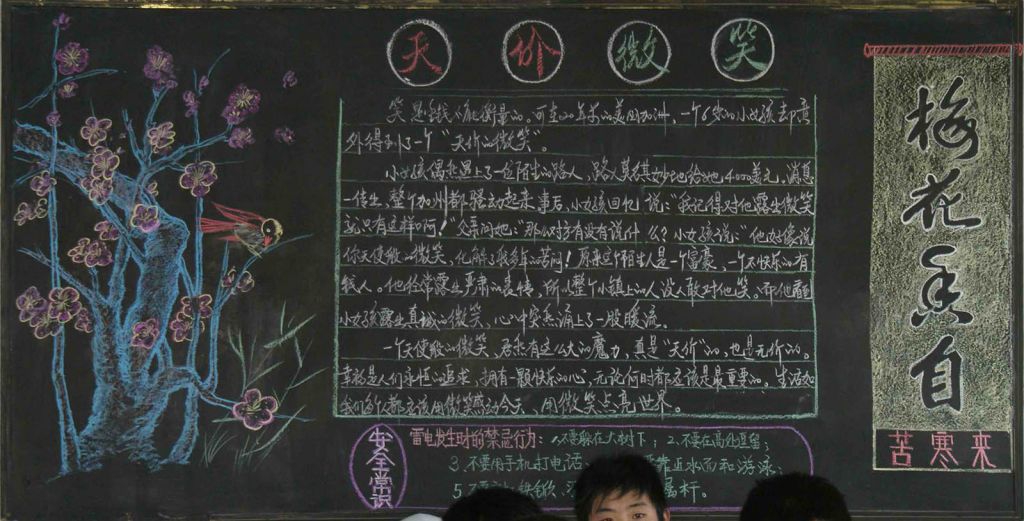 天价微笑
笑是金钱不能衡量的。可在00年前的美国加州,一个6岁的小女孩却意
外得到了一个"天价的微笑"。
小女孩偶然遇上了一位陌生的路人,路人莫名其妙地给她4000美元。消息
一传出,整个加州都骚动起来。事后,小女孩回忆说:"我记得对他露出微笑
就只有这样啊!"父亲问她:"那么对方有没有说什么?小女孩说:"他好像说
你天使般的微笑,化解了我多年的苦闷!原来这个陌生人是一个富豪,一个不快乐的有
钱人。他经常露出严肃的表情,所以整个小镇上的人没人敢对他笑。而他看到
小女孩露出真诚的微笑,心中突然涌上了一股暖流。
一个天使般的微笑,居然有这么大的魔力,真是"天价"的,也是无价的。
幸福是人们永恒的追求,拥有一颗快乐的心,无论何时都应该是最重要的。生活如
我们每个人都应该用微笑感动今天,用微笑点亮世界。
安全常识
雷电发生时的禁忌行为:1.不要躲在大树下;2.不要在高处逗留;
3.不要用手机打电话 要靠近水面和游泳;
5.不 铁锨、 属杆。
梅花香自
苦寒来